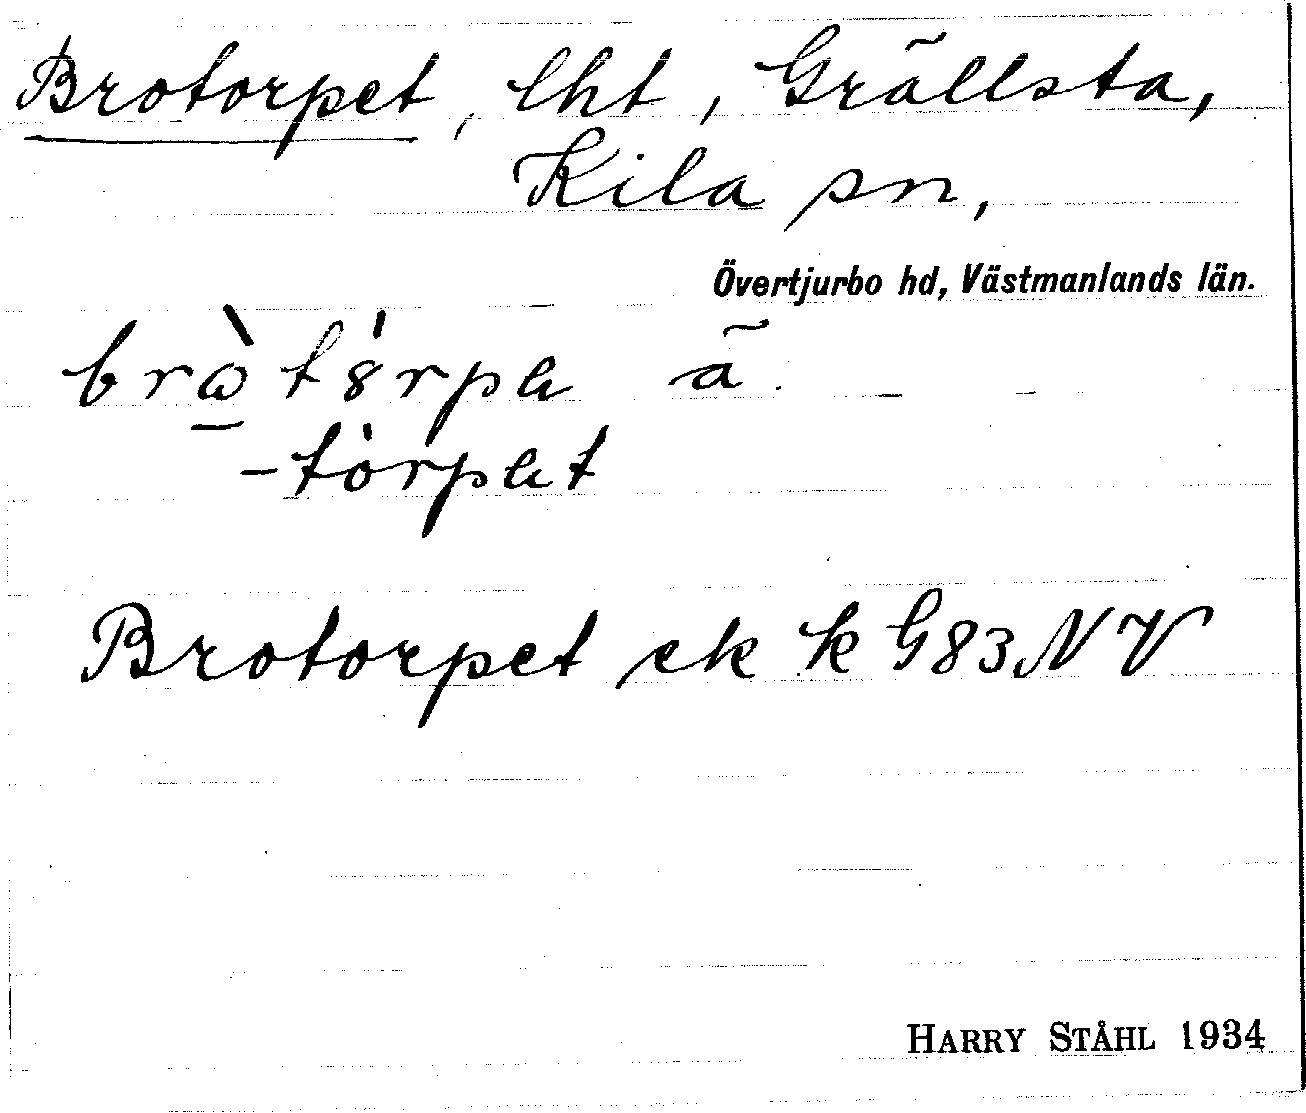 Brotorpet, lht, Grällsta,
Kila sn,
Övertjurbo hd, Västmanlands län.
ä
Brotorpet ek k G83NV
HARRY STÅHL 1934